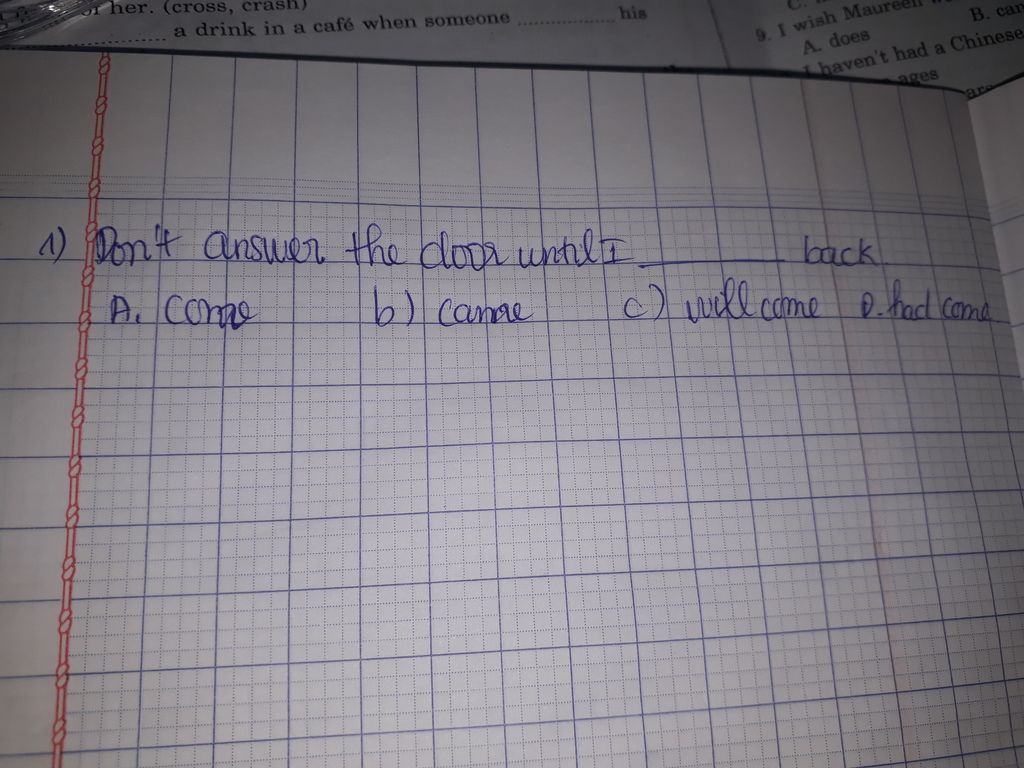 her. (cross, crash)
a drink in a café when someone .................. his
9. I wish Maureen
A. does
B. can
I haven't had a Chinese
ages
are
1) Don't answer the door until I ________ back
A. Come b) Came c) will come D. had come